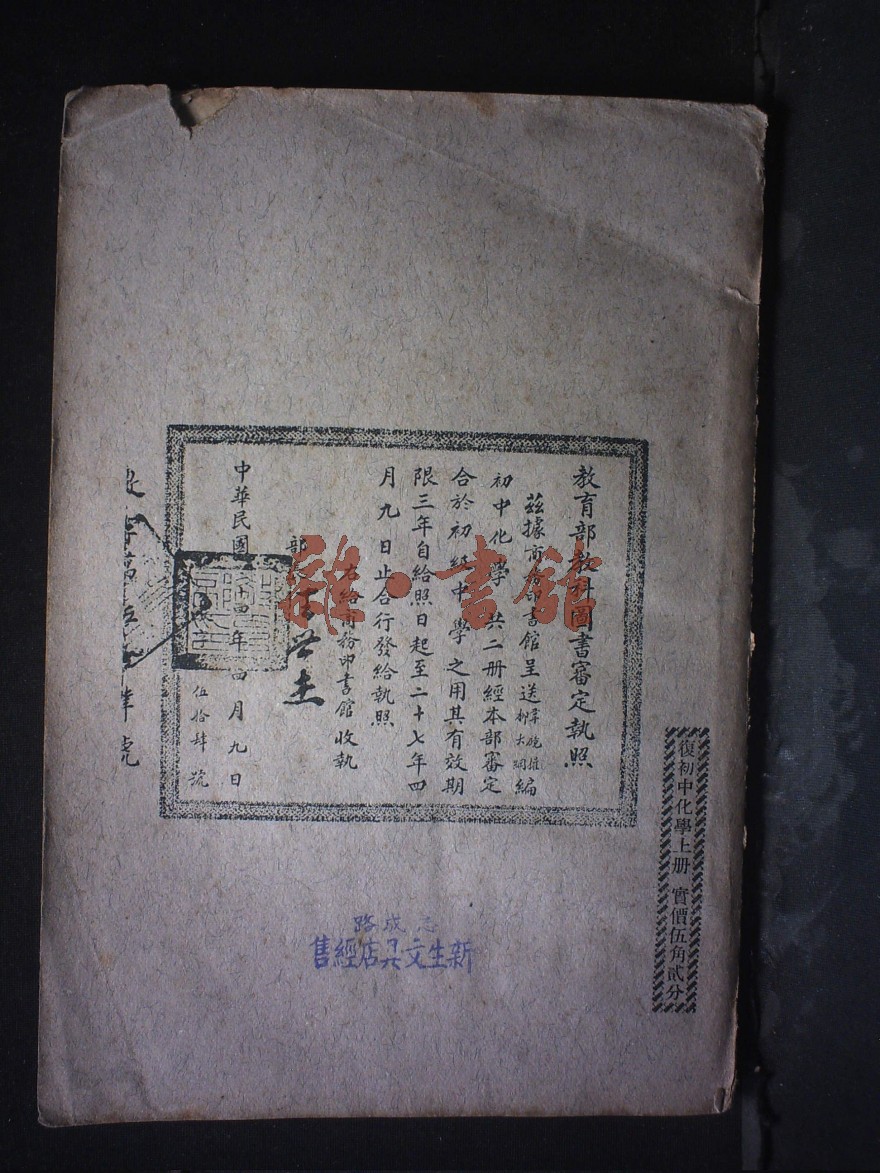 教育部教科圖書審定執照
茲據商務印書館呈送
編
初中化學 共二册經本部審定
合於初級中學之用其有效期
限三年自給照日起至二十七年四
月九日止合行發給執照
右給商務印書館收執
部長王世杰
中華民國 四年四月九日
字 伍拾肆號
復初中化學上册 實價伍角貳分
志成路
新生文具店經售
雜·書館